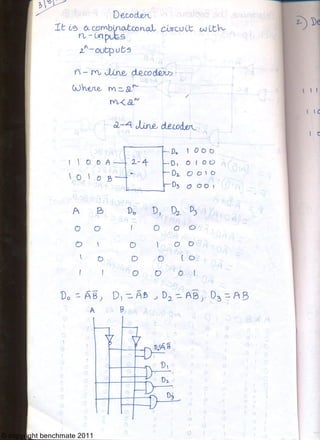 3/8/
Decoder
It is a combinational circuit with
n-inputs
2ⁿ-outputs
n-m line decoders
Where m = 2ⁿ
m < 2ⁿ
2-4 line decoder
D₀ 1 0 0 0
1 1 0 0 A 2-4 D₁ 0 1 0 0
1 0 1 0 B D₂ 0 0 1 0
D₃ 0 0 0 1
A B D₀ D₁ D₂ D₃
0 0 1 0 0 0
0 1 0 1 0 0
1 0 0 0 1 0
1 1 0 0 0 1
D₀ = A̅B̅, D₁ = A̅B, D₂ = AB̅, D₃ = AB
A B
D₁
D₂
D₃
2) De
1 1 1
1 1 0
1 0
benchmate 2011